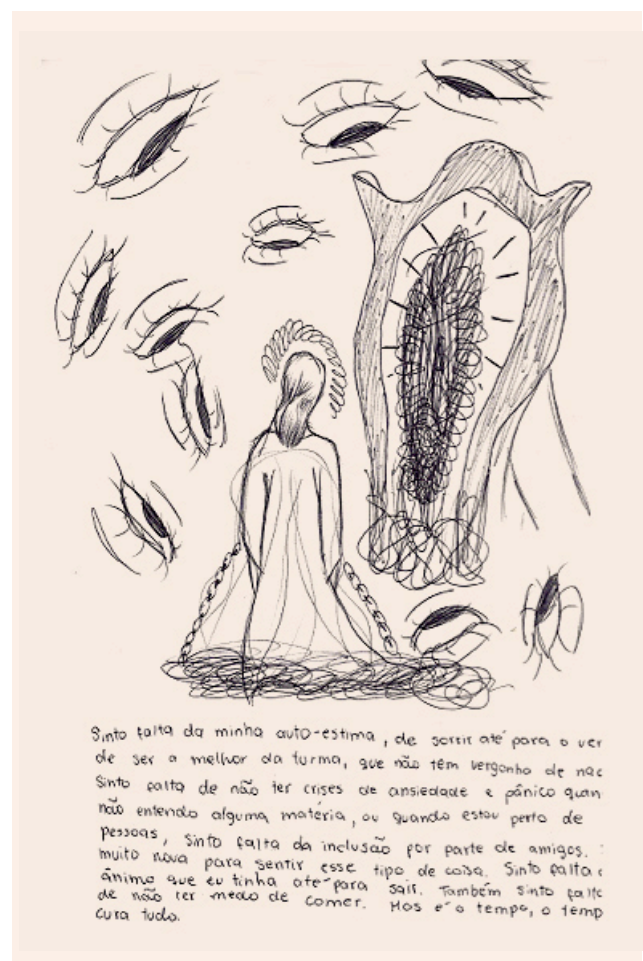 Sinto falta da minha auto-estima, de sorrir até para o ver
de ser a melhor da turma, que não têm vergonha de nac
Sinto falta de não ter crises de ansiedade e pânico quan
não entendo alguma matéria, ou quando estou perto de
pessoas, sinto falta da inclusão por parte de amigos.
muito nova para sentir esse tipo de coisa. Sinto falta
ânimo que eu tinha até para sair. Também sinto falto
de não ter medo de comer. Mas é o tempo, o temp
cura tudo.